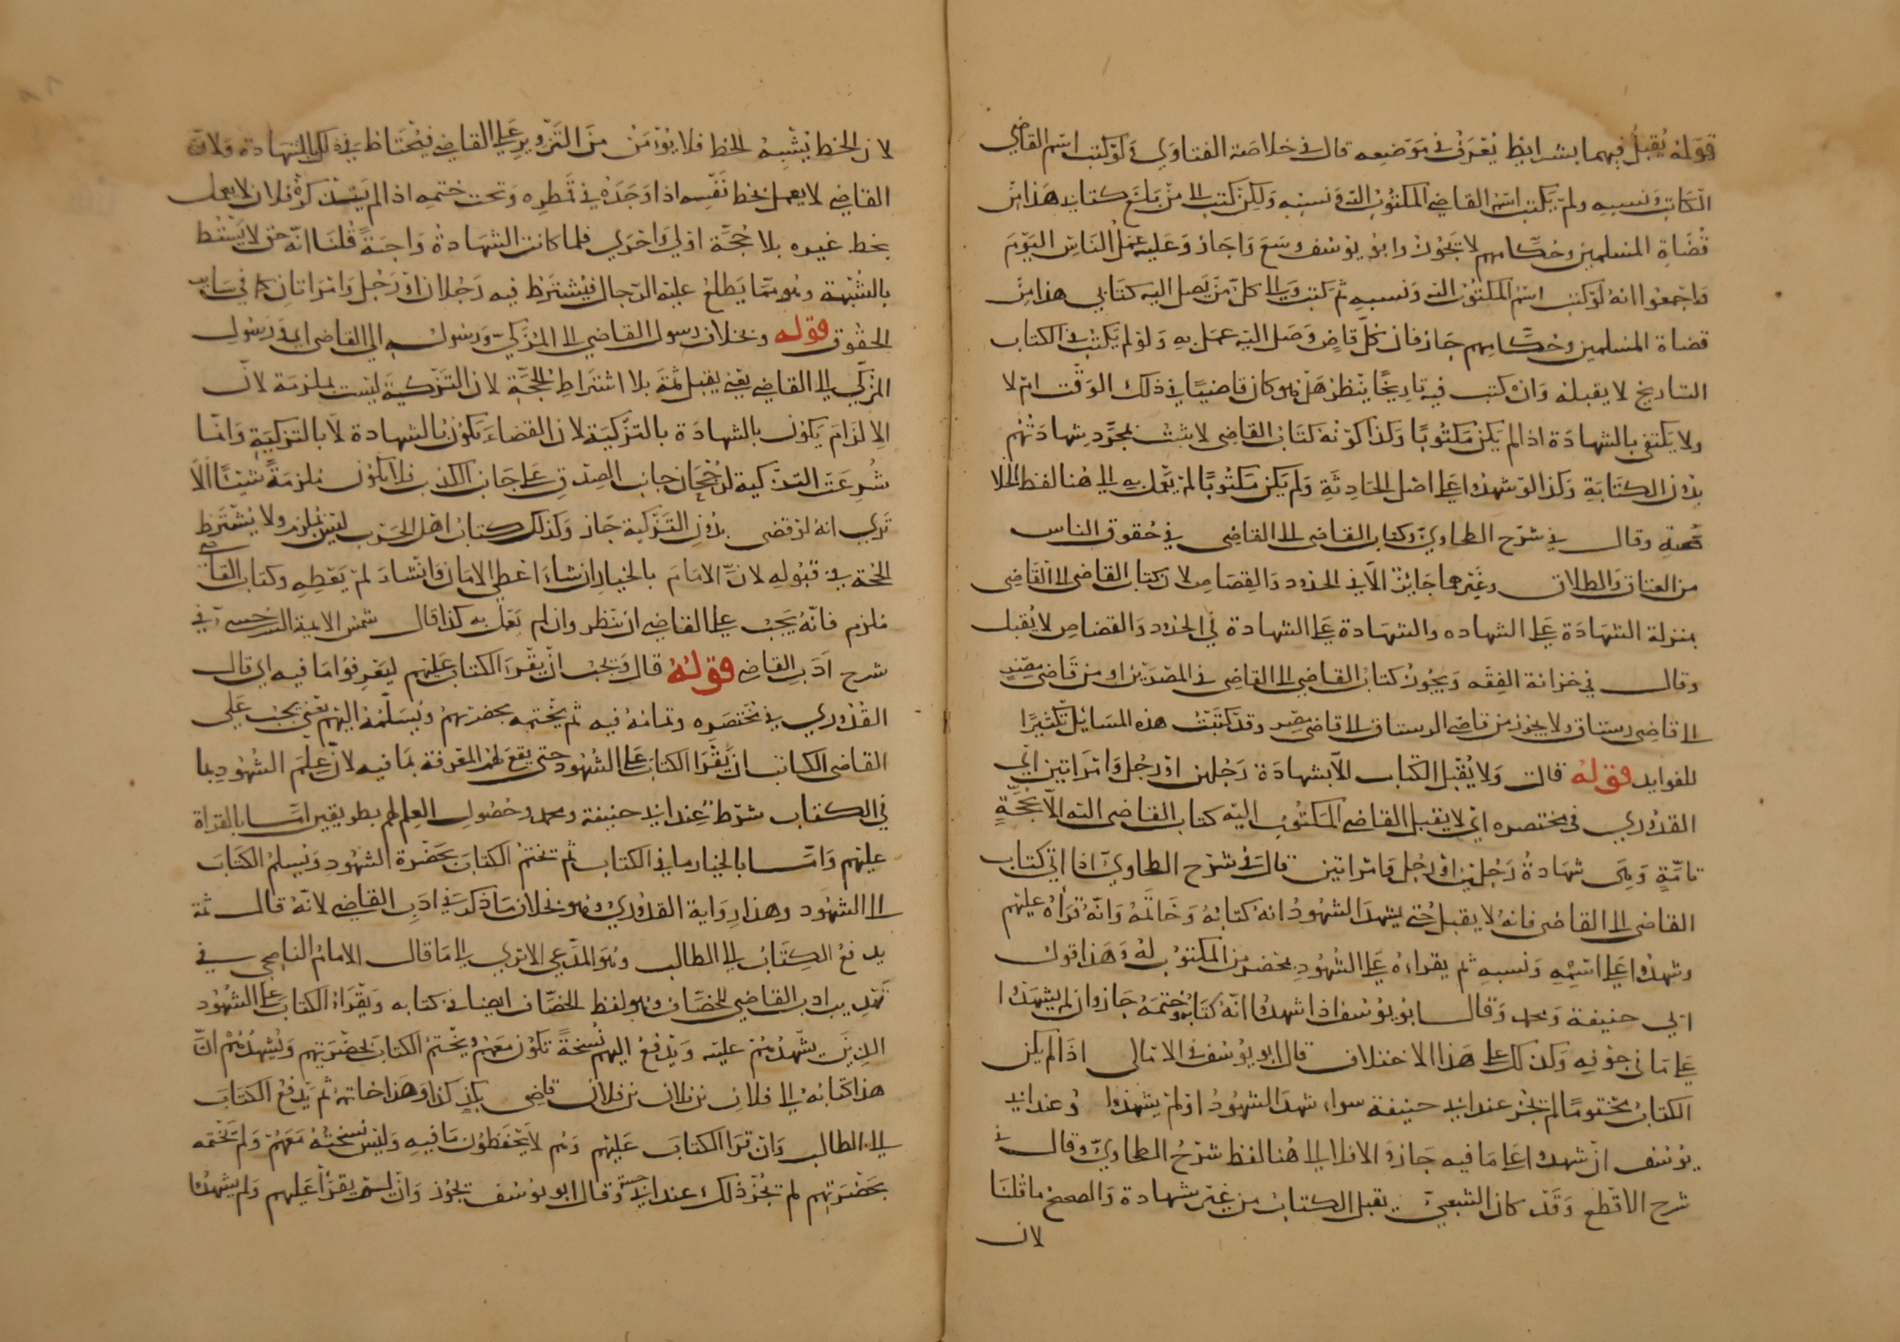 قوله يُقبل فيهما بشرايط يُعرف في موضعه قال في خلاصة الفتاوي ولو كتب اسم القاضي
الكاتب ونسبه ولم يكتب اسم القاضي المكتوب اليه ونسبه ولكن كتب الى من بلغ كتابي هذا من
قضاة المسلمين وحكامهم لا يجوز وابو يوسف وسع واجاز وعليه عمل الناس اليوم
واجمعوا انه لو كتب اسم المكتوب اليه ونسبه ثم كتب والى كل من يصل اليه كتابي هذا من
قضاة المسلمين وحكامهم جاز فان كل قاض وصل اليه عمل به ولو لم يكتب في الكتاب
التاريخ لا يقبله وان كتب فيه تاريخا ينظر هل هو كان قاضيا في ذلك الوقت ام لا
ولا يكتفي بالشهادة اذا لم يكن مكتوبا وكذا كونه كتاب القاضي لا يثبت بمجرد شهادتهم
بدون الكتابة وكذا لو شهدوا على اصل الحادثة ولم يكن مكتوبا لم يعمل به الى هنا لفظ الخلا
صة وقال في شرح الطحاوي وكتاب القاضي الى القاضي في حقوق الناس
من العتاق والطلاق وغيرها جائز الا في الحدود والقصاص لان كتاب القاضي الى القاضي
بمنزلة الشهادة على الشهاده والشهادة على الشهادة في الحدود والقصاص لا يُقبل
وقال في خزانة الفقه ويجوز كتاب القاضي الى القاضي في المصرين او من قاضي مصر
الى قاضي رستاق ولا يجوز من قاضي الرستاق الى قاضي مصر وقد كتبت هذه المسائل تكثيرا
للفوايد قوله قال ولا يُقبل الكتاب الا بشهادة رجلين او رجل وامراتين اي
القدوري في مختصره اي لا يقبل القاضي المكتوب اليه كتاب القاضي اليه الا بحجة
تامة وهي شهادة رجلين او رجل وامراتين قال في شرح الطحاوي اذا اتى كتاب
القاضي الى القاضي فانه لا يقبل حتى يشهد الشهود انه كتابه وخاتمه وانه قراه عليهم
وشهدوا على اسمه ونسبه ثم يقراه على الشهود بمحضر من المكتوب له وهذا قول
ابي حنيفة ومحمد وقال ابو يوسف اذا شهدوا انه كتابه وختمه جاز وان لم يشهدوا
على ما في جوفه وكذلك على هذا الاختلاف قال ابو يوسف في الامالي اذا لم يكن
الكتاب مختوما لم يجز عند ابي حنيفة سواء شهد الشهود او لم يشهدوا وعند ابي
يوسف ان شهدوا على ما فيه جاز والا فلا الى هنا لفظ شرح الطحاوي وقال في
شرح الاقطع وقد كان الشعبي يقبل الكتاب من غير شهادة والصحيح ما قلنا
لان
لان الخط يُشبه الخط فلا يُؤمن من التزوير على القاضي فيحتاط في ذلك بالشهادة ولان
القاضي لا يعمل بخط نفسه اذا وجده في قمطره وتحت ختمه اذا لم يتذكره فلان لا يعمل
بخط غيره بلا حجة اولى واحرى فلما كانت الشهادة واجبة قلنا انه حق لا يسقط
بالشبهة وهو مما يطلع عليه الرجال فيشترط فيه رجلان او رجل وامراتان كما في ساير
الحقوق قوله وبخلاف رسول القاضي الى المزكي ورسوله الى القاضي اي ورسول
المزكي الى القاضي يعني يقبل ثمة بلا اشتراط الحجة لان التزكية ليست بملزمة لان
الالزام يكون بالشهادة بالتزكية لان القضاء يكون بالشهادة لا بالتزكية وانما
شرعت التزكية لرجحان جانب الصدق على جانب الكذب فلا يكون ملزمة شيئا الا
ترى انه لو قضى بدون التزكية جاز وكذلك كتاب اهل الحرب ليس بملزم ولا يشترط
الحجة في قبوله لان الامام بالخيار ان شاء اعطى الامان وان شاء لم يعطه وكتاب القاضي
ملزم فانه يجب على القاضي ان ينظر وان لم يعمل به كذا قال شمس الايمة السرخسي في
شرح ادب القاضي قوله قال ويجب ان يقرا الكتاب عليهم ليعرفوا ما فيه اي قال
القدوري في مختصره وتمامه فيه ثم يختمه بحضرتهم ويسلمه اليهم يعني يجب على
القاضي الكاتب ان يقرا الكتاب على الشهود حتى يقع لهم المعرفة بما فيه لان علم الشهود بما
في الكتاب شرط عند ابي حنيفة ومحمد وحصول العلم لهم بطريقين اما بالقراة
عليهم واما بالخيار ما في الكتاب ثم تختم الكتاب بحضرة الشهود ويسلم الكتاب
الى الشهود وهذا رواية القدوري وهو بخلاف ما ذكر في ادب القاضي لانه قال ثمة
يدفع الكتاب الى الطالب وهو المدعي الا ترى الى ما قال الامام الناصحي في
تهذيب ادب القاضي للخصاف وهو لفظ الخصاف ايضا في كتابه ويقراء الكتاب على الشهود
الذين يشهدهم عليه ويدفع اليهم نسخة تكون معهم ويختم الكتاب بحضرتهم ويشهدهم ان
هذا كتابه الى فلان بن فلان بن فلان قاضي بلد كذا وهذا خاتمه ثم يدفع الكتاب
الى الطالب وان قرا الكتاب عليهم وهم لا يحفظون ما فيه وليس نسخته معهم ولم يختمه
بحضرتهم لم يجز ذلك عند ابي حنيفة وقال ابو يوسف يجوز وان لم يقرا عليهم ولم يشهدوا